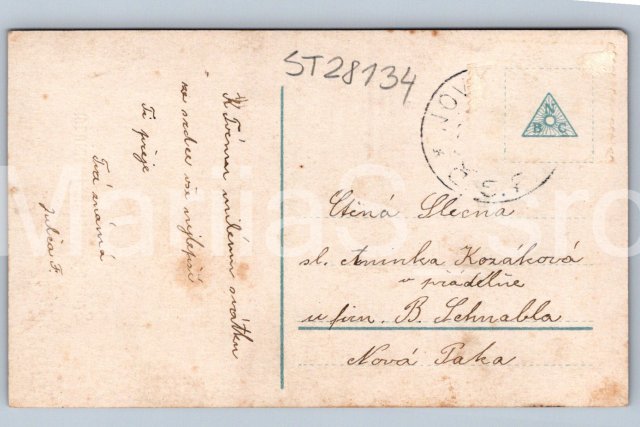 ST28134
K Tvému milému svátku
ze srdce vše nejlepší
Ti přeje
Tvá známá
Julča F.
N
B C
Ctěná Slečna
sl. Aninka Kozáková
v přádelně
u firm. B. Schnabla
Nová Paka